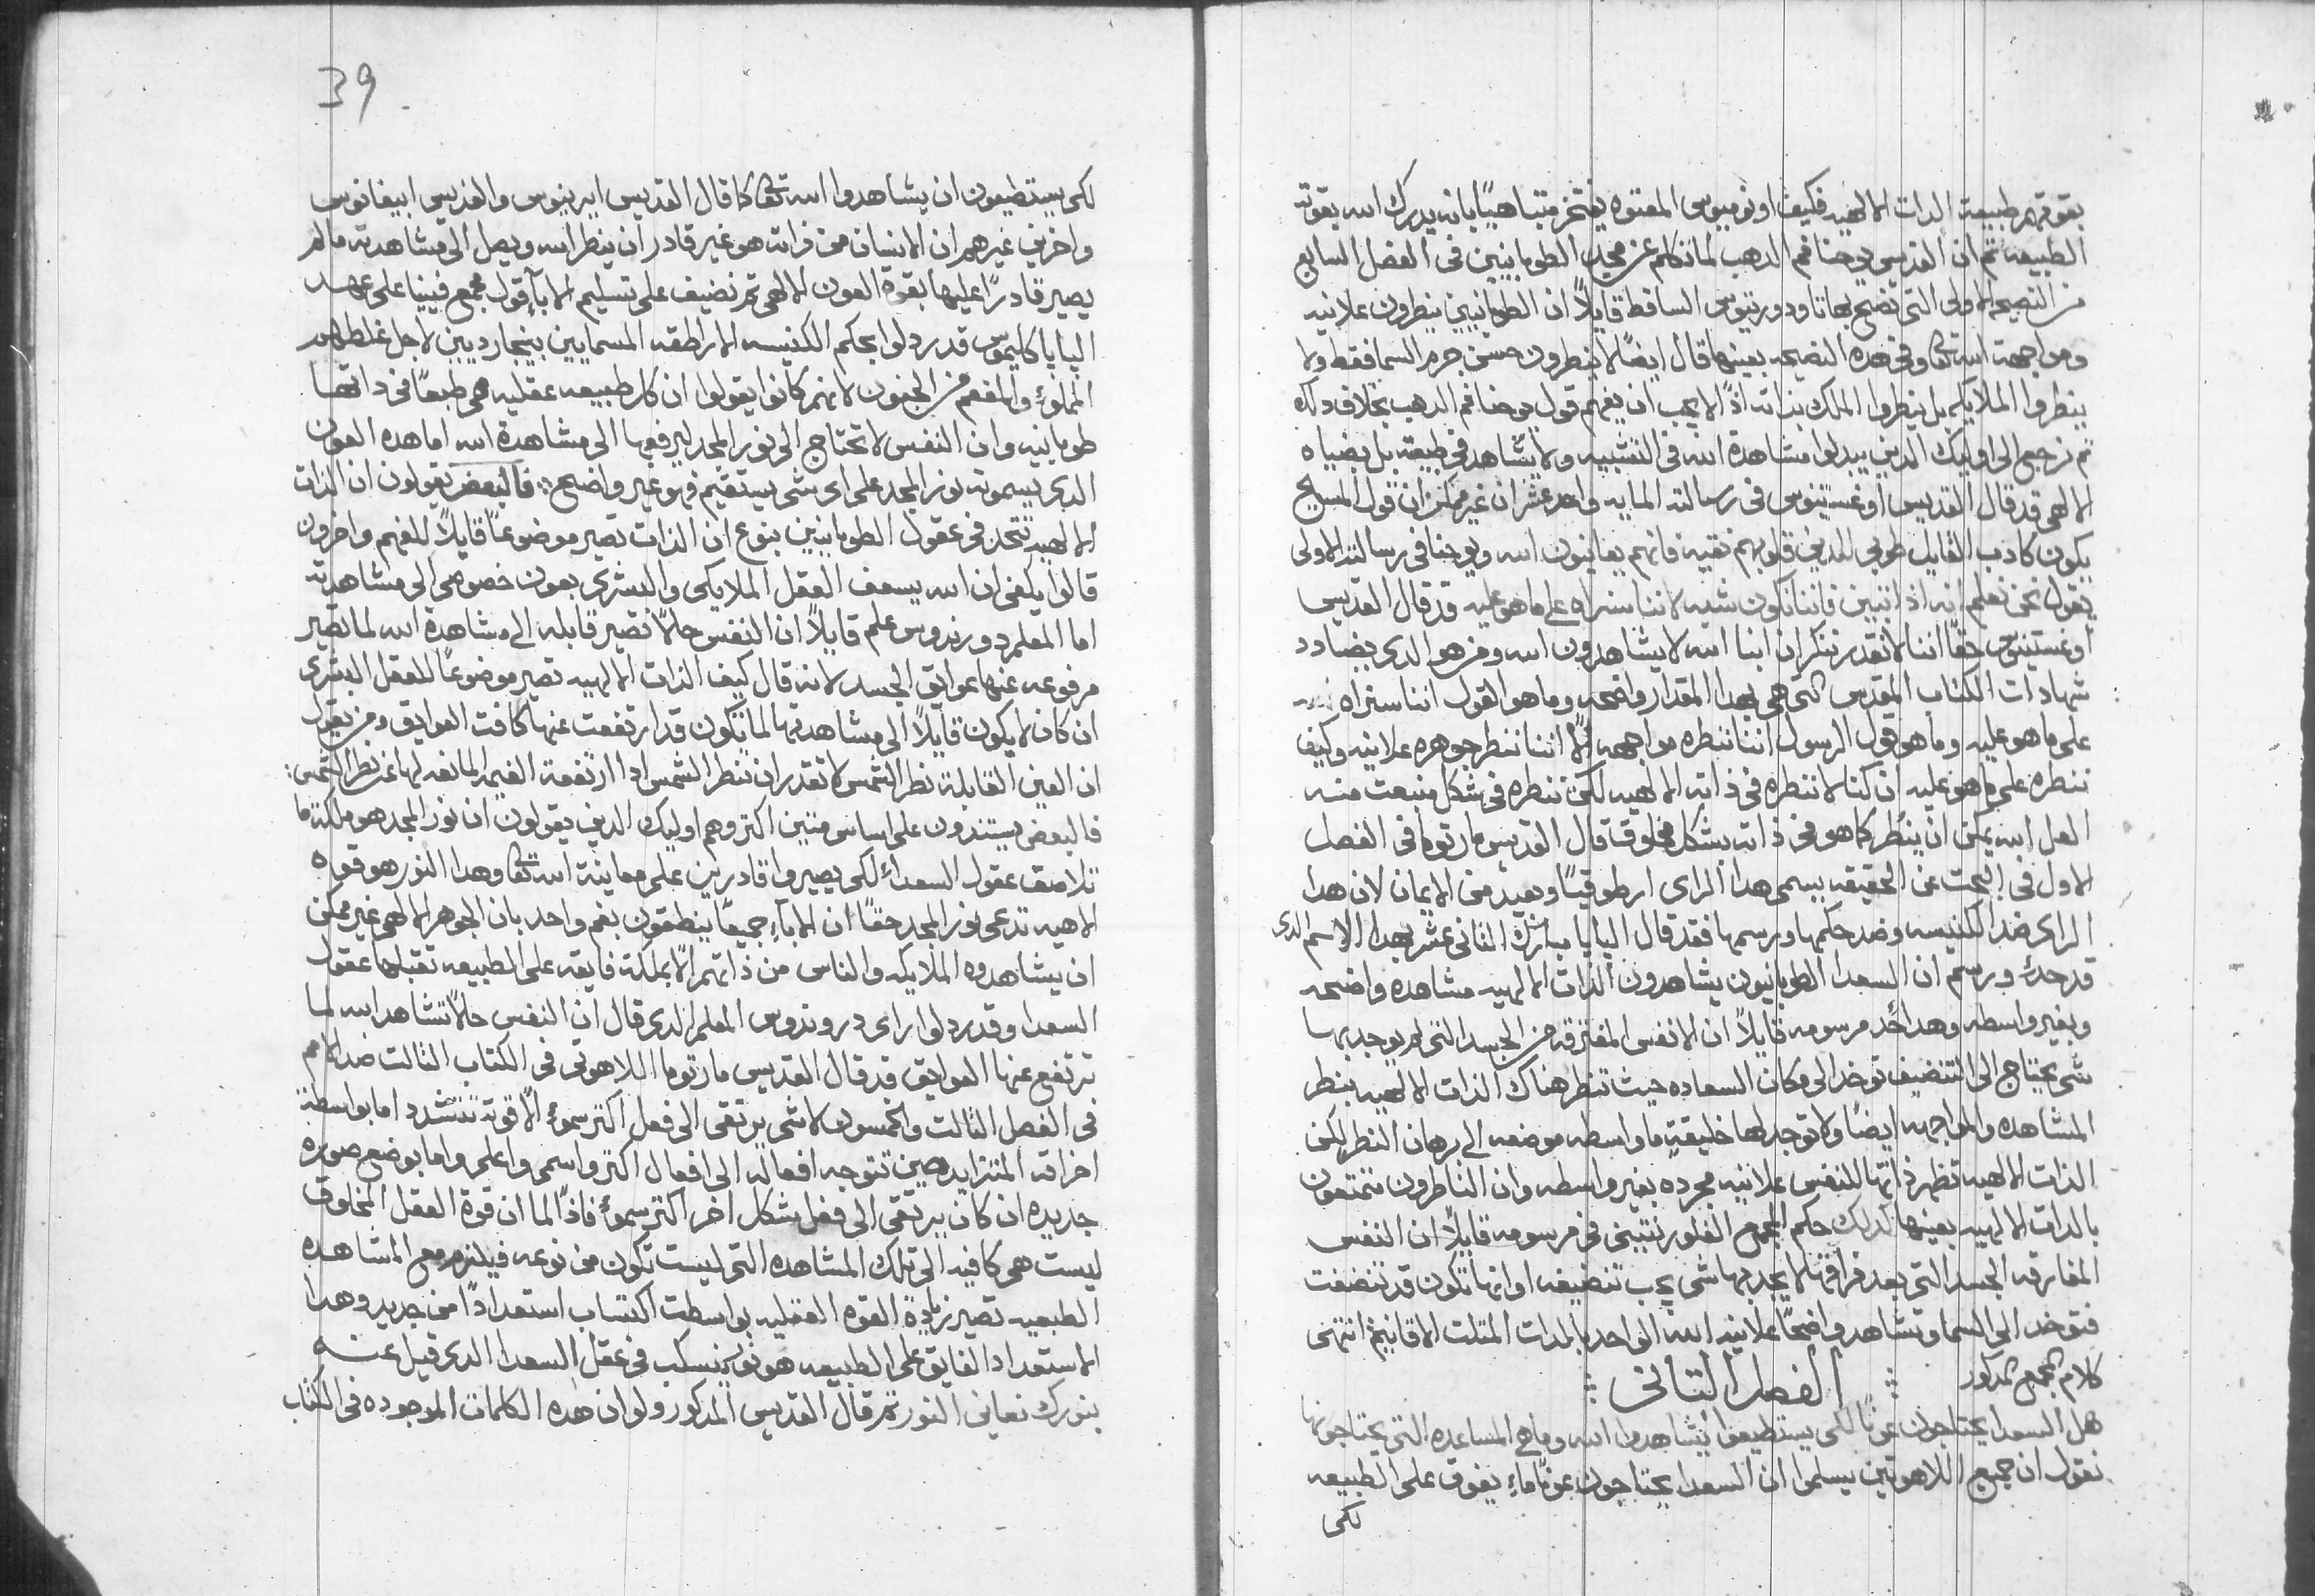 بقوتهم طبيعة الدات الالهيه فكيف اونوميوس المعتوه يفتخر متباهيًا بانه يدرك الله بقوته
الطبيعه ثم ان القديس يوحنا فم الدهب لما تكلم عن مجد الطوبانيين فى الفصل السابع
من النصيحه الاولى التى تضح بها تاودوريتوس الساقط قايلاً ان الطوبانيين ينظرون علانيه
ومواجهة الله تعا وفى هده النصيحه بعينها قال ايضًا لا ينظرون حسن جرم السما فقط ولا
ينظروا الملايكه بل ينظروا الملك بذاته اذًا لا يجب ان يفهم قول يوحنا فم الدهب بخلاف دلك
ثم نرجع الى اوليك الدين يبدلوا مشاهدة الله فى التشبيه ولا يشاهد فى طبيعته بل بضياه
الالهى قد قال القديس اوغستينوس فى رسالته المايه واحد عشر ان غير ممكن ان قول المسيح
يكون كادب القايل طوبى للدين قلوبهم نقيه فانهم يعاينون الله ويوحنا فى رسالته الاولى
يقول نحن نعلم انه اذا تبين فاننا نكون شبهه لاننا سنراه على ما هو عليه قد قال القديس
اوغستينوس حقًا اننا لا نقدر ننكر ان ابنا الله لا يشاهدون الله ومن هو الدى يضادد
شهادات الكتاب المقدس التى هى بهدا المقدار واضحه وما هو القول اننا سنراه
على ما هو عليه وما هو قول الرسول اننا ننظره مواجهه الّا اننا ننظر جوهره علانيه وكيف
ننظره على ما هو عليه ان كنا لا ننظره فى ذاته الالهيه لكن ننظره فى شكل منبعت منه
العل الله يمكن ان ينظر كما هو فى ذاته بشكل مخلوق قال القديس مارتوما فى الفصل
الاول فى البحت عن الحقيقه يسمى هدا الراى ارطوقيًا وبعيد من الايمان لان هدا
الراى ضد الكنيسه وضد حكمها ورسمها فقد قال البابا مبارك التانى عشر بهدا الاسم الدى
قد حدد ورسم ان السعدا الطوبانيون يشاهدون الذات الالهيه مشاهده واضحه
وبغير واسطه وهدا حد مرسومه قايلاً ان الانفس المفترقه من الجسد التى لم يوجد بها
شى يحتاج الى التنضيف توخد الى مكان السعاده حيث تنظر هناك الذات الالهيه بنظر
المشاهده والمواجهه ايضًا ولا توجد لها خليقةٍ ما واسطه موضعه الى برهان النظر لكن
الذات الالهيه تظهر ذاتها للنفس علانيه مجرده بغير واسطه وان الناظرون متمتعون
بالدات الالهيه بعينها كدلك حكم المجمع الفلورنتينى فى مرسومه قايلاً ان النفس
المفارقه الجسد التى بعد فراقها لا يجد بها شى يجب تنضيفه او انها تكون قد تنضفت
فتوخد الى السما وتشاهد واضحًا علانيه الله الواحد بالدات المتلت الاقانيم انتهى
كلام المجمع المدكور ⁘ الفصل التانى ⁘
هل السعدا يحتاجون عونًا لكى يستطيعوا يشاهدوا الله وما هى المساعده التى يحتاجونها
نقول ان جميع اللاهوتيين يسلموا ان السعدا يحتاجون عونًا ماءٍ يفوق على الطبيعه
لكى
39
لكى يستطيعون ان يشاهدوا الله تعا كما قال القديس ايرينيوس والقديس ابيفانوس
واخرين غيرهم ان الانسان من ذاته هو غير قادر ان ينظر الله ويصل الى مشاهدته مالم
يصير قادرًا عليها بقوة العون الالهى ثم نضيف على تسليم الابآ قول مجمع فيينا على عهد
البابا كليموس قد ردلوا بحكم الكنيسه الاراطقه المسمايين بيغارديين لاجل غلطهم
المملؤ والمفعم من الجنون لانهم كانوا يقولوا ان كل طبيعه عقليه هى طبعًا فى داتها
طوبانيه وان النفس لا تحتاج الى نور المجد ليرفعها الى مشاهدة الله اما هده العون
الدى يسموه نور المجد على اى شى يستقيم فهو غير واضح ⁘ فالبعض يقولون ان الذات
الالهيه تتحد فى عقول الطوبانيين بنوع ان الذات تصير موضوعًا قابلاً للفهم واخرون
قالوا يكفى ان الله يسعف العقل الملايكى والبشرى بعون خصوصى الى مشاهدته
اما المعلم دورندوس علم قايلاً ان النفس حالاً تصير قابله الى مشاهدة الله لما تصير
مرفوعه عنها عوايق الجسد لانه قال كيف الذات الالهيه تصير موضوعًا للعقل البشرى
ان كان لا يكون قابلاً الى مشاهدتها لما تكون قد ارتفعت عنها كافت العوايق ومن يقول
ان العين القابلة نظر الشمس لا تقدر ان تنظر الشمس ادا ارتفعة الغيمه المانعه لها عن نظر الشمس:
فالبعض يستندون على اساس متين اكتر وهم اوليك الدين يقولون ان نور المجد هو ملكة ما
تلاصق عقول السعدآ لكى يصيروا قادرين على معاينة الله تعا وهدا النور هو قوه
الاهيه تدعى نور المجد حقًا ان الابآء جميعًا ينطقون بفم واحد بان الجوهر الالهى غير ممكن
ان يشاهدوه الملايكه والناس من ذاتهم الّا بملكة فايقه على الطبيعه تقبلها عقول
السعدا وقد ردلوا راى دروندوس المعلم الدى قال ان النفس حالاً تشاهد الله لما
ترتفع عنها العوايق قد قال القديس مارتوما اللاهوتى فى الكتاب التالت ضد الامم
فى الفصل التالت والخمسون لا شى يرتقى الى فعل اكتر سموءً الّا قوته تتشدد اما بواسطة
اخراته المتزايده حين تتوجه افعاله الى افعال اكتر واسمى واعلى واما بوضع صوره
جديده ان كان يرتقى الى فعل بشكل اخر اكتر سموءً فاذًا لما ان قوة العقل المخلوق
ليست هى كافيه الى تلك المشاهده التى ليست تكون من نوعه فيلزم مع المشاهده
الطبعيه تصير زيادة القوه العقليه بواسطت اكتساب استعدادًا من جديد وهدا
الاستعداد الفايق على الطبيعه هو نور ينسكب فى عقل السعدا الدى قيل عنه
بنورك نعاين النور ثم قال القديس المدكور ولو ان هده الكلمات الموجوده فى الكتاب